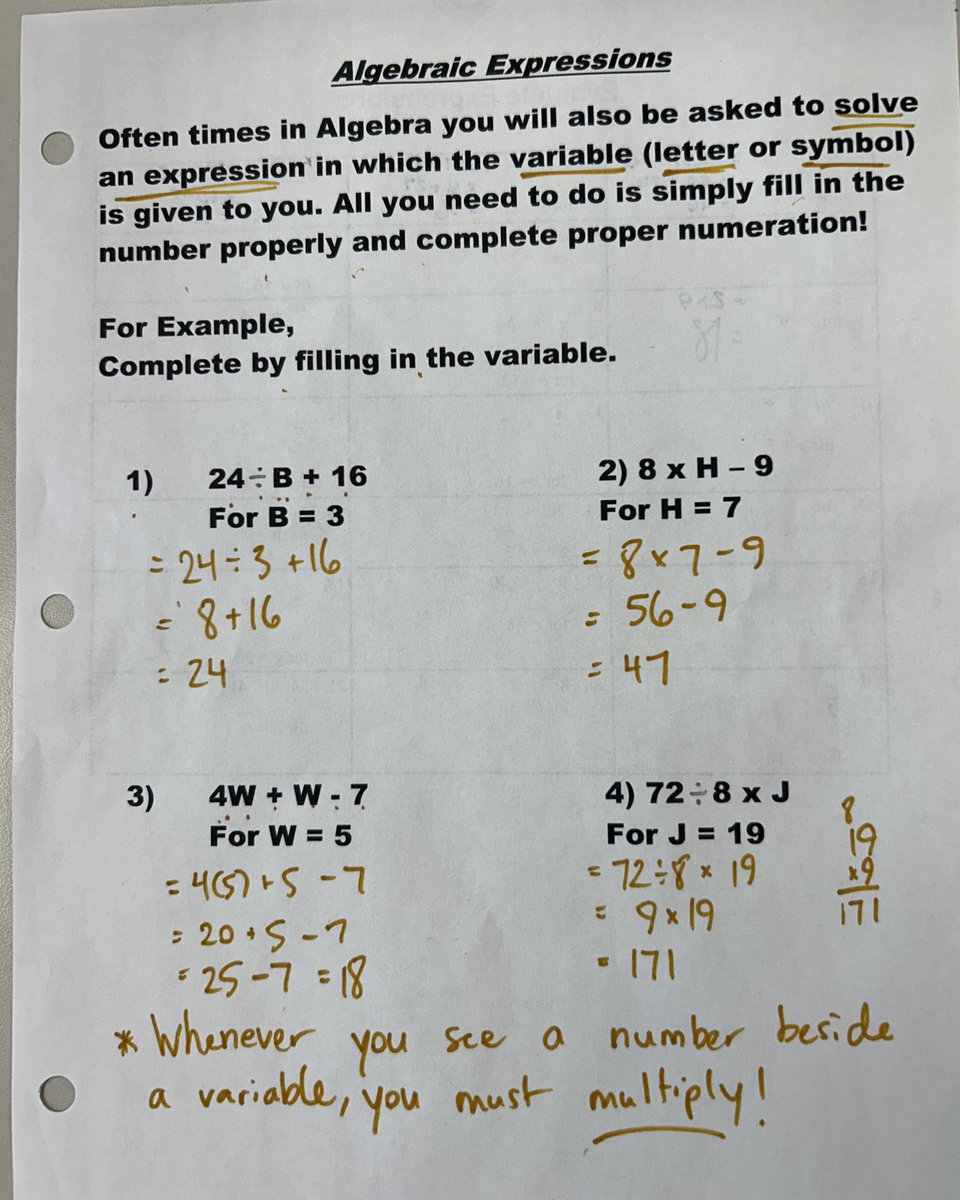 Algebraic Expressions
Often times in Algebra you will also be asked to solve
an expression in which the variable (letter or symbol)
is given to you. All you need to do is simply fill in the
number properly and complete proper numeration!
For Example,
Complete by filling in the variable.
1) 24÷B + 16
For B = 3
= 24÷3 +16
= 8+16
= 24
2) 8 x H – 9
For H = 7
= 8×7-9
= 56-9
= 47
3) 4W + W - 7
For W = 5
= 4(5)+5 -7
= 20+5-7
= 25-7 =18
4) 72÷8 x J
For J = 19
= 72÷8 × 19
= 9×19
= 171
8
19
×9
171
* Whenever you see a number beside
a variable, you must multiply!